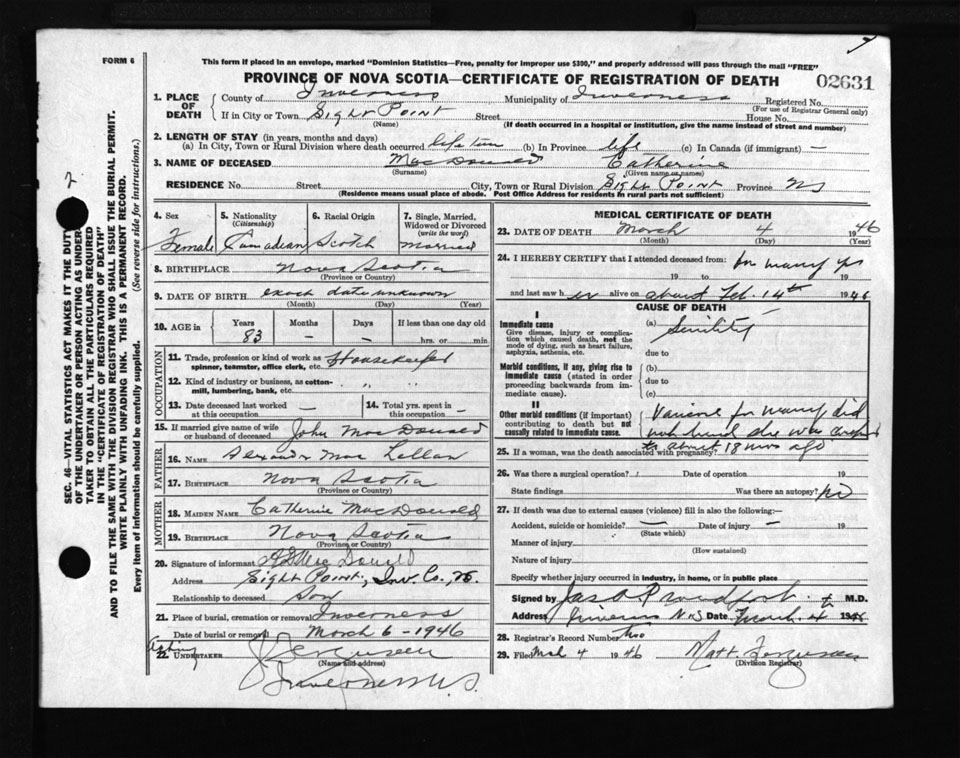 FORM 6
This form if placed in an envelope, marked "Dominion Statistics—Free, penalty for improper use $300," and properly addressed will pass through the mail "FREE"
PROVINCE OF NOVA SCOTIA—CERTIFICATE OF REGISTRATION OF DEATH
02631
1. PLACE OF DEATH
County of Inverness Municipality of Inverness Registered No.
(For use of Registrar General only)
If in City or Town Sight Point Street House No.
(Name) (If death occurred in a hospital or institution, give the name instead of street and number)
2. LENGTH OF STAY (in years, months and days)
(a) In City, Town or Rural Division where death occurred life time (b) In Province life (c) In Canada (if immigrant) —
3. NAME OF DECEASED MacDonald Catherine
(Surname) (Given name or names)
RESIDENCE No. Street City, Town or Rural Division Sight Point Province NS
(Residence means usual place of abode. Post Office Address for residents in rural parts not sufficient)
4. Sex
Female
5. Nationality
(Citizenship)
Canadian
6. Racial Origin
Scotch
7. Single, Married, Widowed or Divorced
(write the word)
Married
8. BIRTHPLACE Nova Scotia
(Province or Country)
9. DATE OF BIRTH exact date unknown
(Month) (Day) (Year)
10. AGE in
Years Months Days If less than one day old
83 — — hrs. or min.
OCCUPATION
11. Trade, profession or kind of work as spinner, teamster, office clerk, etc. Housekeeper
12. Kind of industry or business, as cotton-mill, lumbering, bank, etc. " "
13. Date deceased last worked at this occupation —
14. Total yrs. spent in this occupation —
15. If married give name of wife or husband of deceased John MacDonald
FATHER
16. NAME Alexander Mac Lellan
17. BIRTHPLACE Nova Scotia
(Province or Country)
MOTHER
18. MAIDEN NAME Catherine MacDonald
19. BIRTHPLACE Nova Scotia
(Province or Country)
20. Signature of informant MacDonald
Address Sight Point, Inv. Co.
Relationship to deceased Son
21. Place of burial, cremation or removal Inverness
Date of burial or removal March 6 - 1946
22. UNDERTAKER Acting Ferguson
(Name and address)
Inverness N.S.
MEDICAL CERTIFICATE OF DEATH
23. DATE OF DEATH March 4 1946
(Month) (Day) (Year)
24. I HEREBY CERTIFY that I attended deceased from: for many yrs
19 to 19
and last saw her alive on about Feb. 14th 1946
CAUSE OF DEATH
I
Immediate cause
Give disease, injury or complication which caused death, not the mode of dying, such as heart failure, asphyxia, asthenia, etc.
(a) Senility
due to
Morbid conditions, if any, giving rise to immediate cause (stated in order proceeding backwards from immediate cause).
(b)
due to
(c)
II
Other morbid conditions (if important) contributing to death but not causally related to immediate cause.
for many
she was
about 18 ago
25. If a woman, was the death associated with pregnancy?
26. Was there a surgical operation? Date of operation 19
State findings Was there an autopsy? no
27. If death was due to external causes (violence) fill in also the following:—
Accident, suicide or homicide? — Date of injury — 19
(State which)
Manner of injury
(How sustained)
Nature of injury
Specify whether injury occurred in industry, in home, or in public place
Signed by Jas A Proudfoot M.D.
Address Inverness N.S Date March 4 1946
28. Registrar's Record Number Two
29. Filed Mch 4 1946 Matt. Ferguson
(Division Registrar)
2
SEC. 46—VITAL STATISTICS ACT MAKES IT THE DUTY
OF THE UNDERTAKER OR PERSON ACTING AS UNDER-
TAKER TO OBTAIN ALL THE PARTICULARS REQUIRED
IN THE "CERTIFICATE OF REGISTRATION OF DEATH"
AND TO FILE THE SAME WITH THE DIVISION REGISTRAR WHO SHALL ISSUE THE BURIAL PERMIT.
WRITE PLAINLY WITH UNFADING INK. THIS IS A PERMANENT RECORD.
Every item of information should be carefully supplied. (See reverse side for instructions.)